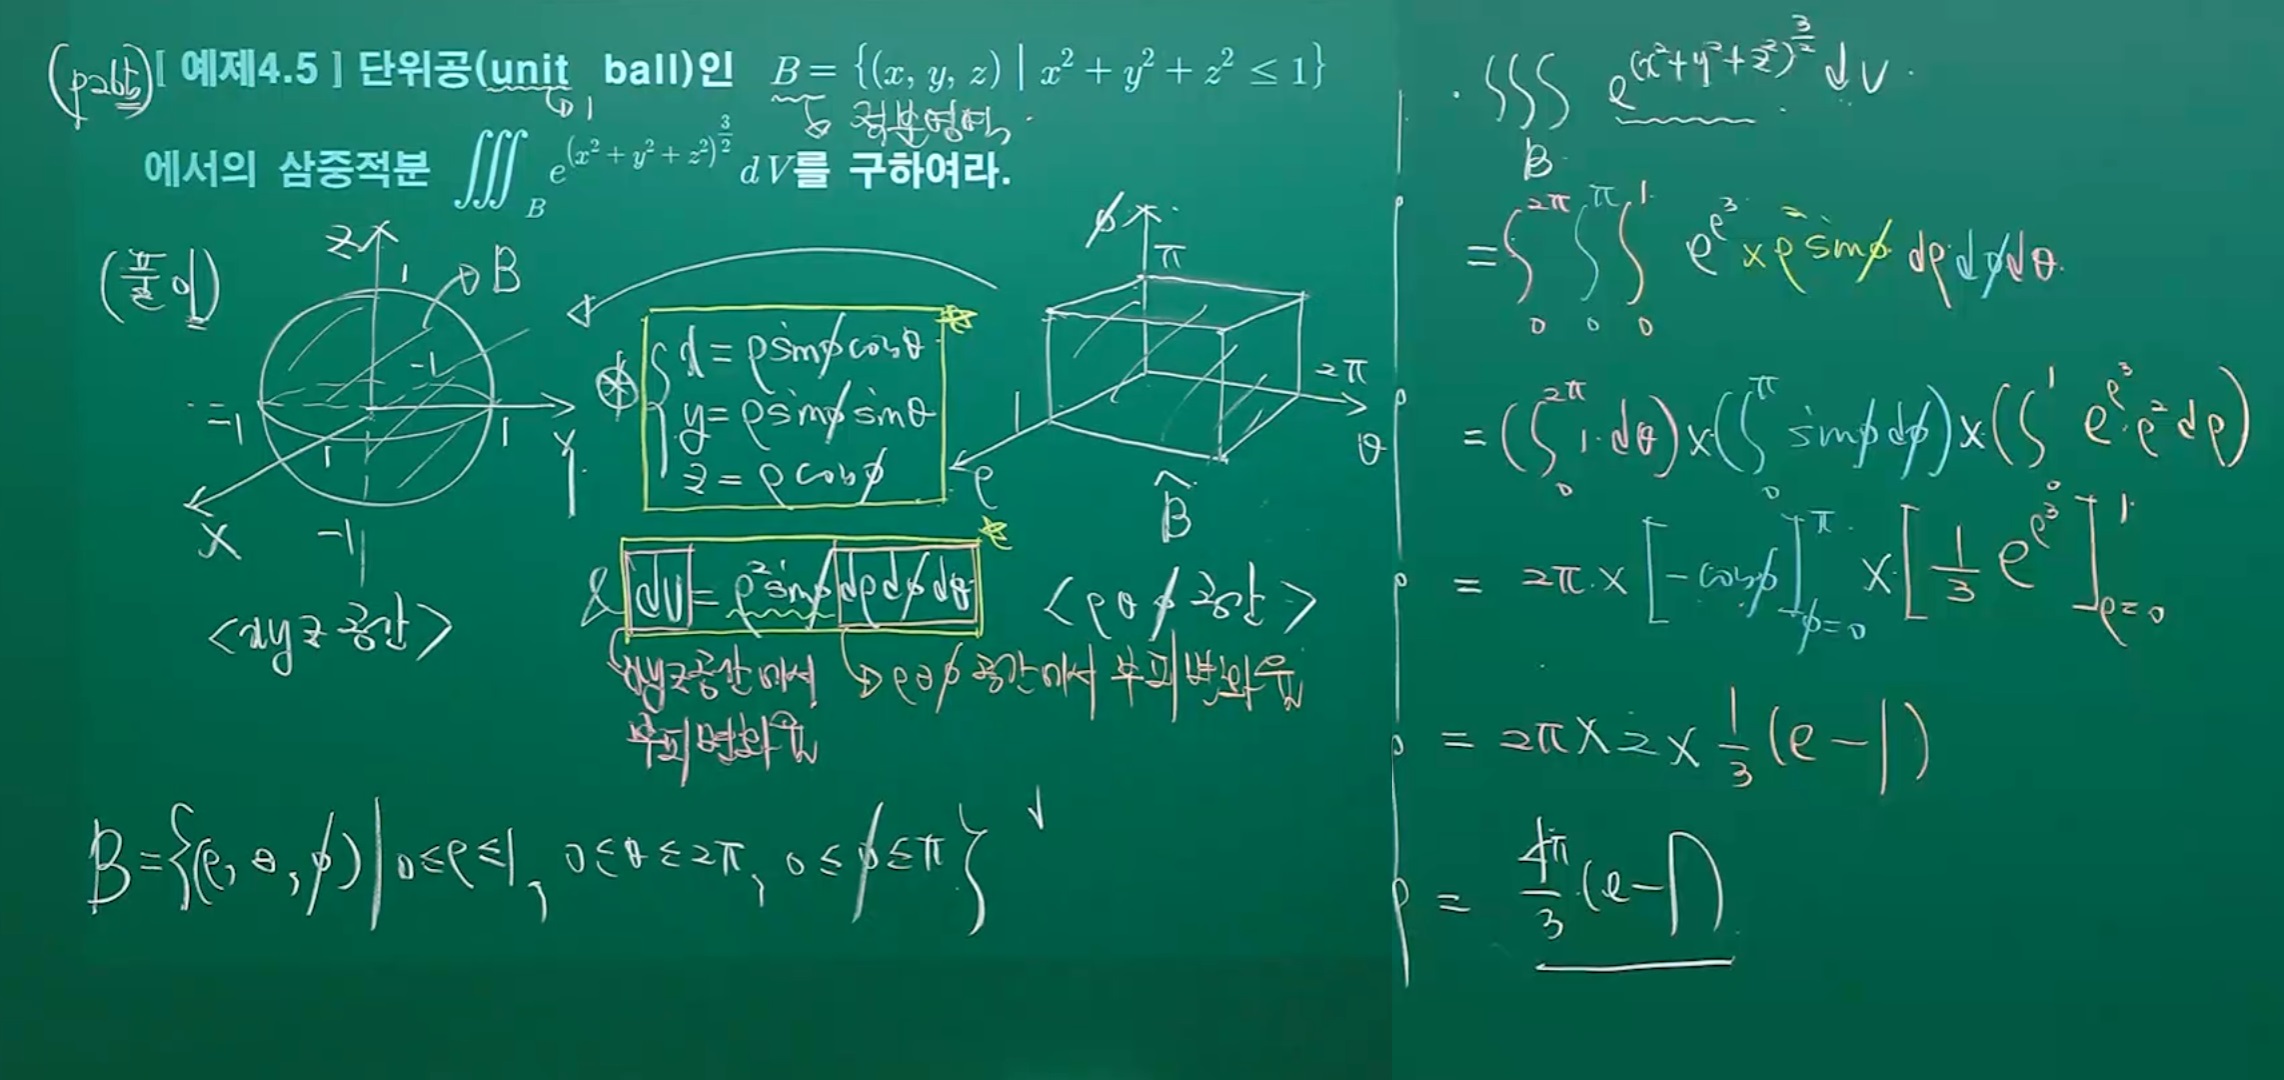 (p266) [ 예제4.5 ] 단위공(unit ball)인 B = {(x, y, z) | x² + y² + z² ≤ 1}
↳ 1
↳ 적분영역.
에서의 삼중적분 ∭_B e^(x² + y² + z²)^(3/2) dV를 구하여라.
(풀이)
Z
1
B
-1
-1
1
Y
1
X
-1
<xyz공간>
⊛ { x = ρsinφcosθ
y = ρsinφsinθ
z = ρcosφ
& dV = ρ²sinφ dρdφdθ
xyz공간에서
부피변화율
↳ ρθφ 공간에서 부피변화율
φ
π
2π
θ
1
ρ
B̂
<ρθφ공간>
B = {(ρ, θ, φ) | 0≤ρ≤1, 0≤θ≤2π, 0≤φ≤π}
· ∭_B e^(x²+y²+z²)^(3/2) dV.
= ∫_0^2π ∫_0^π ∫_0^1 e^ρ³ × ρ²sinφ dρdφdθ.
= (∫_0^2π 1·dθ) × (∫_0^π sinφdφ) × (∫_0^1 e^ρ³·ρ²dρ)
= 2π × [-cosφ]_φ=0^π × [1/3 e^ρ³]_ρ=0^1
= 2π × 2 × 1/3 (e-1)
= 4π/3 (e-1)